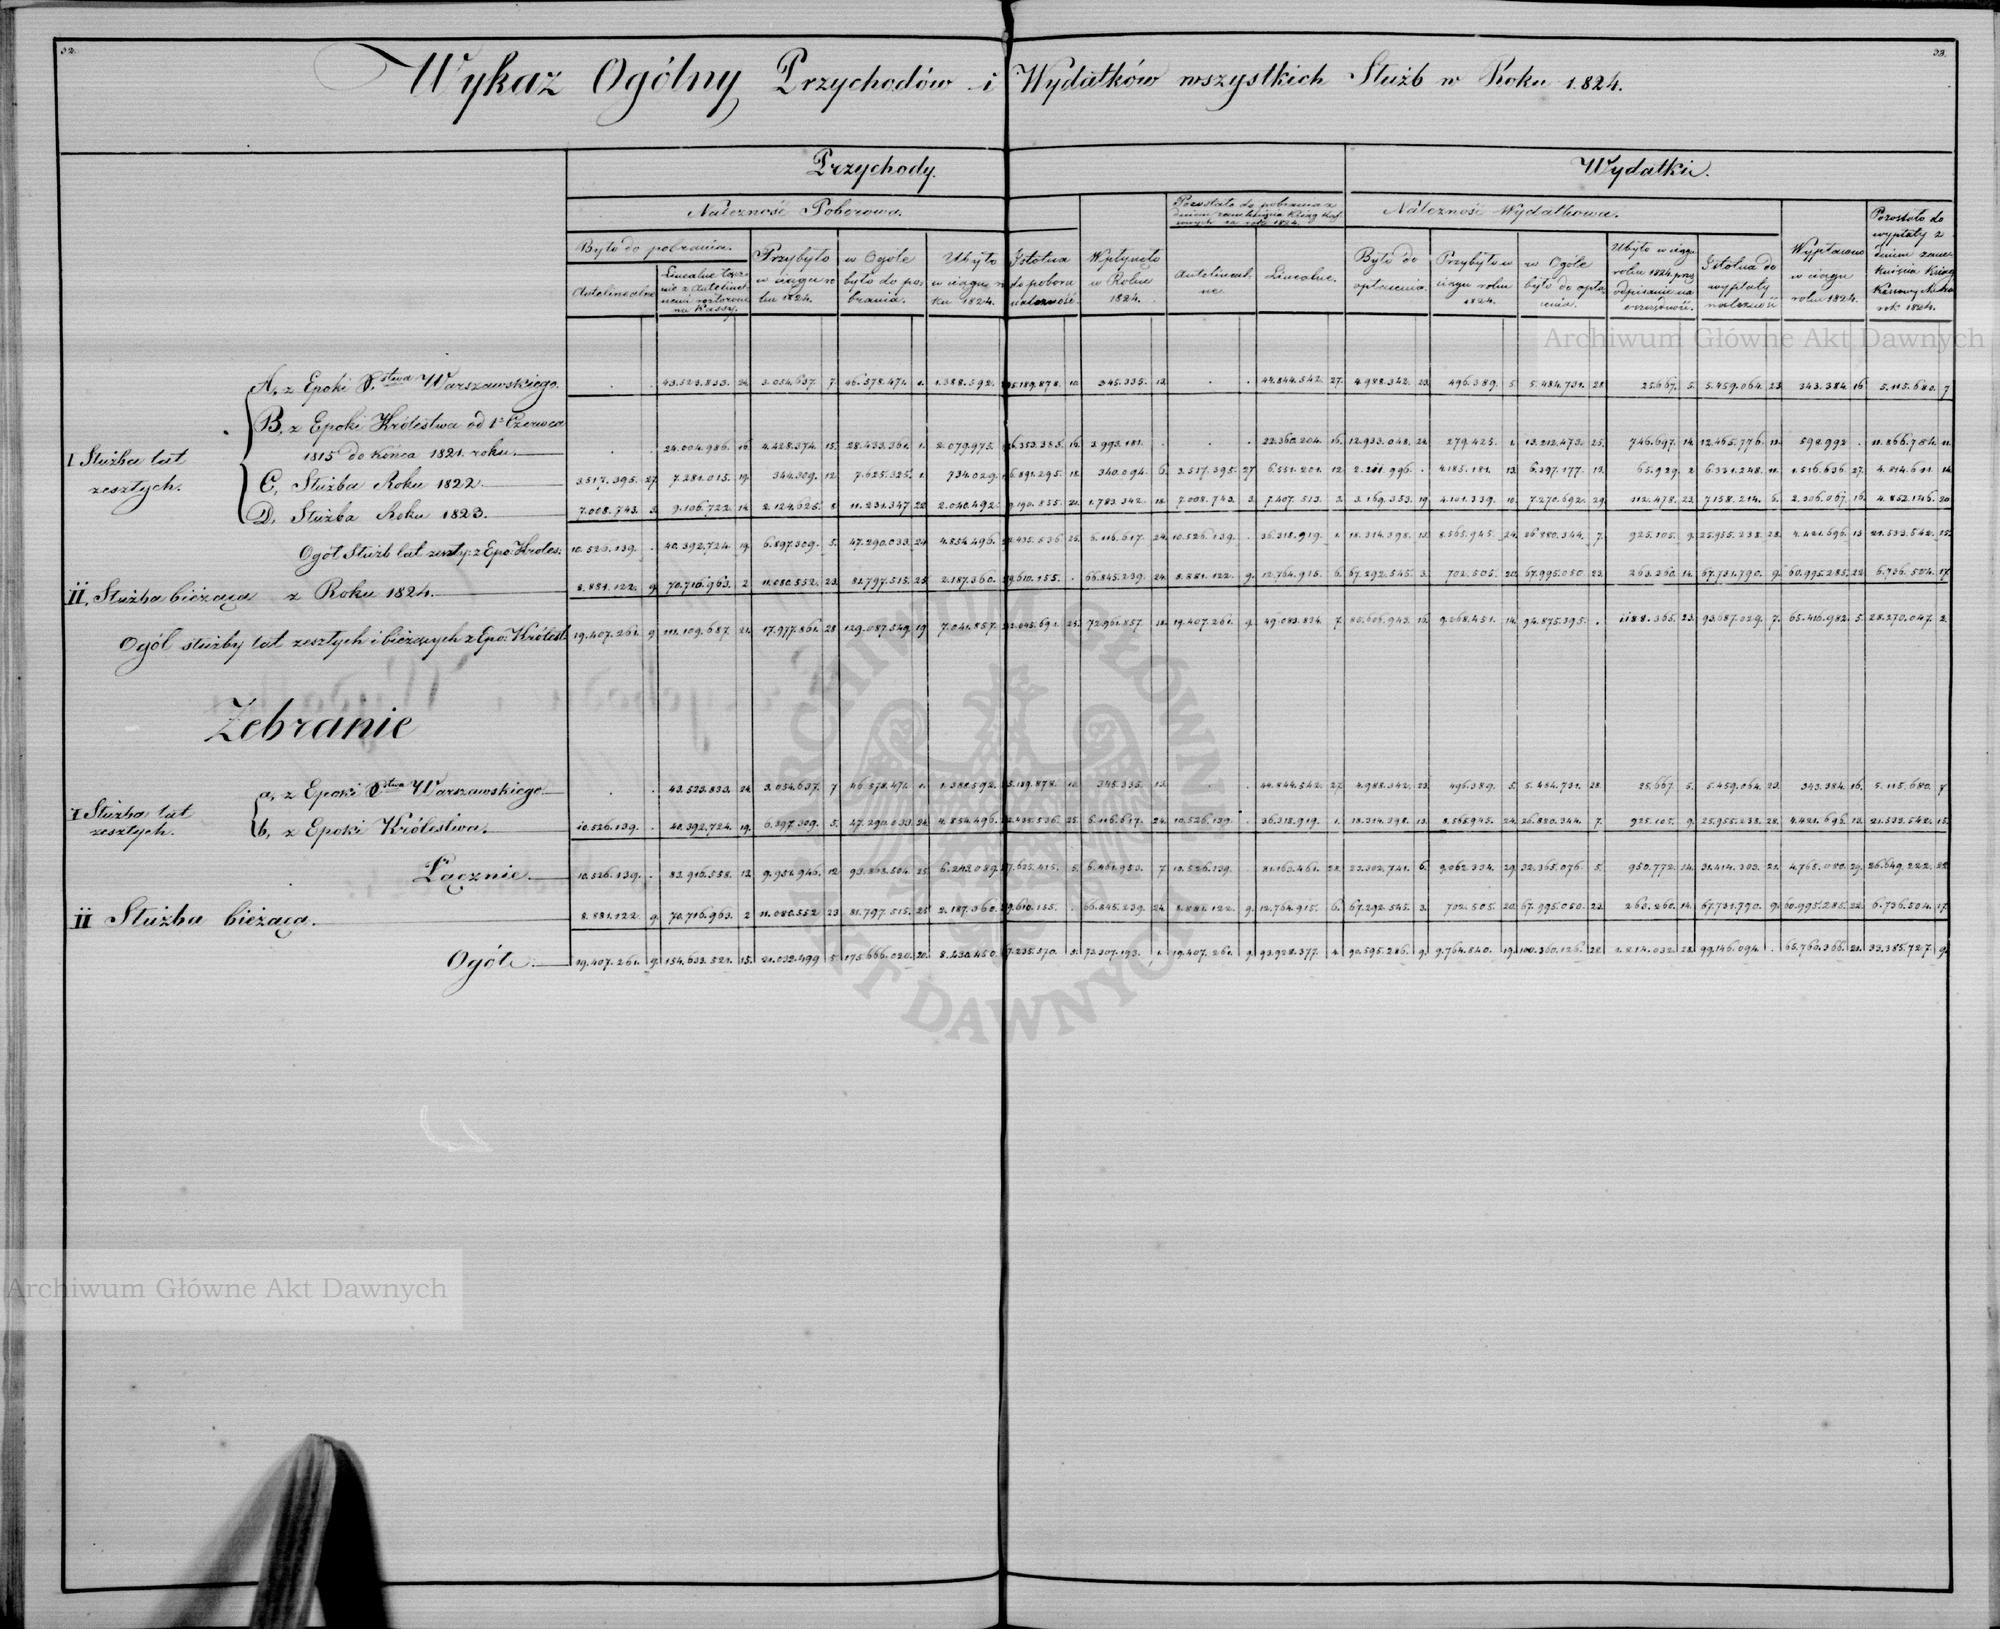 32.
33.
Wykaz Ogólny Przychodów i Wydatków wszystkich Służb w Roku 1824.
Przychody.
Wydatki.
Należność Poborowa.
Należność Wydatkowa.
Było do pobrania.
Antelinealne
Linealne łącz-
nie z Antelineal-
Kassy.
Przybyło
w ciągu ro-
ku 1824.
w Ogóle
było do po-
brania.
Ubyło
w ciągu ro-
ku 1824.
Istotna
do poboru
należność
Wpłynęło
w Roku
1824.
Pozostało do pobrania z
dniem zamknięcia Ksiąg Kas-
sowych za rok 1824.
Antelineal-
ne.
Linealne.
Było do
opłacenia.
Przybyło w
ciągu roku
1824.
w Ogóle
było do opła-
cenia.
Ubyło w ciągu
roku 1824 przez
odpisanie na
oszczędność.
Istotna do
wypłaty
należność
Wypłacono
w ciągu
roku 1824.
Pozostało do
wypłaty z
dniem zam-
knięcia Ksiąg
Kassowych za
rok 1824.
I Służba lat
zeszłych.
A, z Epoki X.stwa Warszawskiego.
43.523.833. 24. 3.054.637. 7. 46.578.471. 1. 1.388.592. 345.335. 13. 44.844.542. 27. 4.988.342. 23. 496.389. 5. 5.484.731. 28. 25.667. 5. 5.459.064. 23. 343.384. 16. 5.115.680. 7
B. z Epoki Królestwa od 1o Czerwca
1815 do końca 1821. roku.
24.004.986. 16. 4.428.374. 15. 28.433.361. 1. 2.079.975. 3.993.181. 22.360.204. 16. 12.933.048. 24. 279.425. 1. 13.212.473. 25. 746.697. 14. 12.465.776. 11. 11.866.784. 11.
C, Służba Roku 1822
3.517.395. 27. 7.281.015. 19. 344.309. 12. 7.625.325. 1. 734.029. 6.891.295. 18. 340.094. 6. 3.517.395. 27 6.551.201. 12 4.185.181. 13. 6.397.177. 13. 65.929. 2. 6.331.248. 11. 1.516.636. 27. 4.814.611. 14.
D, Służba Roku 1823.
7.008.743. 3. 9.106.722. 14. 2.124.625. 8. 11.231.347. 22. 2.040.492. 9.190.855. 21. 1.783.342. 18. 7.008.743. 3. 7.407.513. 3. 3.169.353. 19. 4.101.339. 10. 7.270.692. 29. 112.478. 23. 7.158.214. 6. 2.306.067. 16. 4.852.146. 20
Ogół Służb lat zeszły: z Epo: Króles:
10.526.139. 40.392.724. 19. 6.897.309. 5. 47.290.033. 24. 4.854.496. 6.116.617. 24. 10.526.139. 36.318.919. 1. 18.314.398. 13. 8.565.945. 24. 26.880.344. 7. 925.105. 9. 25.955.238. 28. 4.421.696. 13. 21.533.542. 15.
II, Służba bieżąca z Roku 1824.
8.881.122. 9. 70.716.963. 2 11.080.552. 23. 81.797.515. 25 2.187.360. 66.845.239. 24. 8.881.122. 9. 12.764.915. 6. 67.292.545. 3. 702.505. 20. 67.995.050. 23. 263.260. 14. 67.731.790. 9. 60.995.285. 22. 6.736.504. 17.
Ogół służby lat zeszłych i bieżących z Epo: Królest.
19.407.261. 9. 111.109.687. 21. 17.977.861. 28 129.087.549. 19 7.041.857. 72.961.857. 18. 19.407.261. 9. 49.083.834. 7. 85.606.943. 16. 9.268.451. 14. 94.875.395. 1188.365. 23. 93.687.029. 7. 65.416.982. 5. 28.270.047. 2.
Zebranie
I Służba lat
zeszłych.
a, z Epoki X.stwa Warszawskiego.
43.523.833. 24. 3.054.637. 7 46.578.471. 1. 1.388.592. 345.335. 13. 44.844.542. 27. 4.988.342. 23. 496.389. 5. 5.484.731. 28. 25.667. 5. 5.459.064. 23. 343.384. 16. 5.115.680. 7
b, z Epoki Królestwa.
10.526.139. 40.392.724. 19. 6.897.309. 5. 47.290.033. 24. 4.854.496. 6.116.617. 24. 10.526.139. 36.318.919. 1. 18.314.398. 13. 8.565.945. 24. 26.880.344. 7. 925.105. 9. 25.955.238. 28. 4.421.696. 13. 21.533.542. 15.
Łącznie.
10.526.139. 83.916.558. 13 9.951.946. 12 93.868.504. 25 6.243.089. 6.461.953. 7 10.526.139. 81.163.461. 28. 23.302.741. 6. 9.062.334. 29. 32.365.076. 5. 950.772. 14. 31.414.303. 21. 4.765.080. 29. 26.649.222. 22.
II Służba bieżąca.
8.881.122. 9. 70.716.963. 2 11.080.552 23. 81.797.515. 25 2.187.360. 66.845.239. 24. 8.881.122. 9. 12.764.915. 6. 67.292.545. 3. 702.505. 20. 67.995.050. 23. 263.260. 14. 67.731.790. 9. 60.995.285. 22. 6.736.504. 17.
Ogół.
19.407.261. 9. 154.633.521. 15. 21.032.499 5. 175.666.020. 20. 8.430.450. 73.307.193. 1. 19.407.261. 9. 93.928.377. 4. 90.595.286. 9. 9.764.840. 19. 100.360.126. 28. 99.146.094. 65.760.366. 21. 33.385.727. 9.
Archiwum Główne Akt Dawnych
Archiwum Główne Akt Dawnych
ARCHIWUM GŁÓWNE AKT DAWNYCH